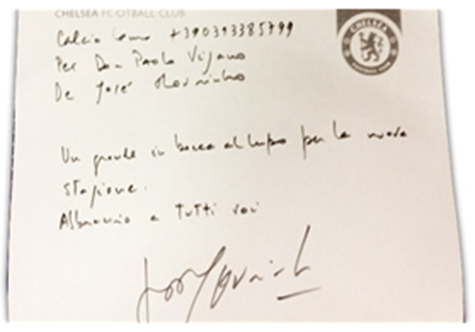 CHELSEA FC OTBALL CLUB
CHELSEA
FOOTBALL CLUB
Calcio Como +390313385799
Per Don Paolo Vigano
De José Mourinho
Un grande in bocca al lupo per la nuova
stagione.
Abbraccio a tutti voi